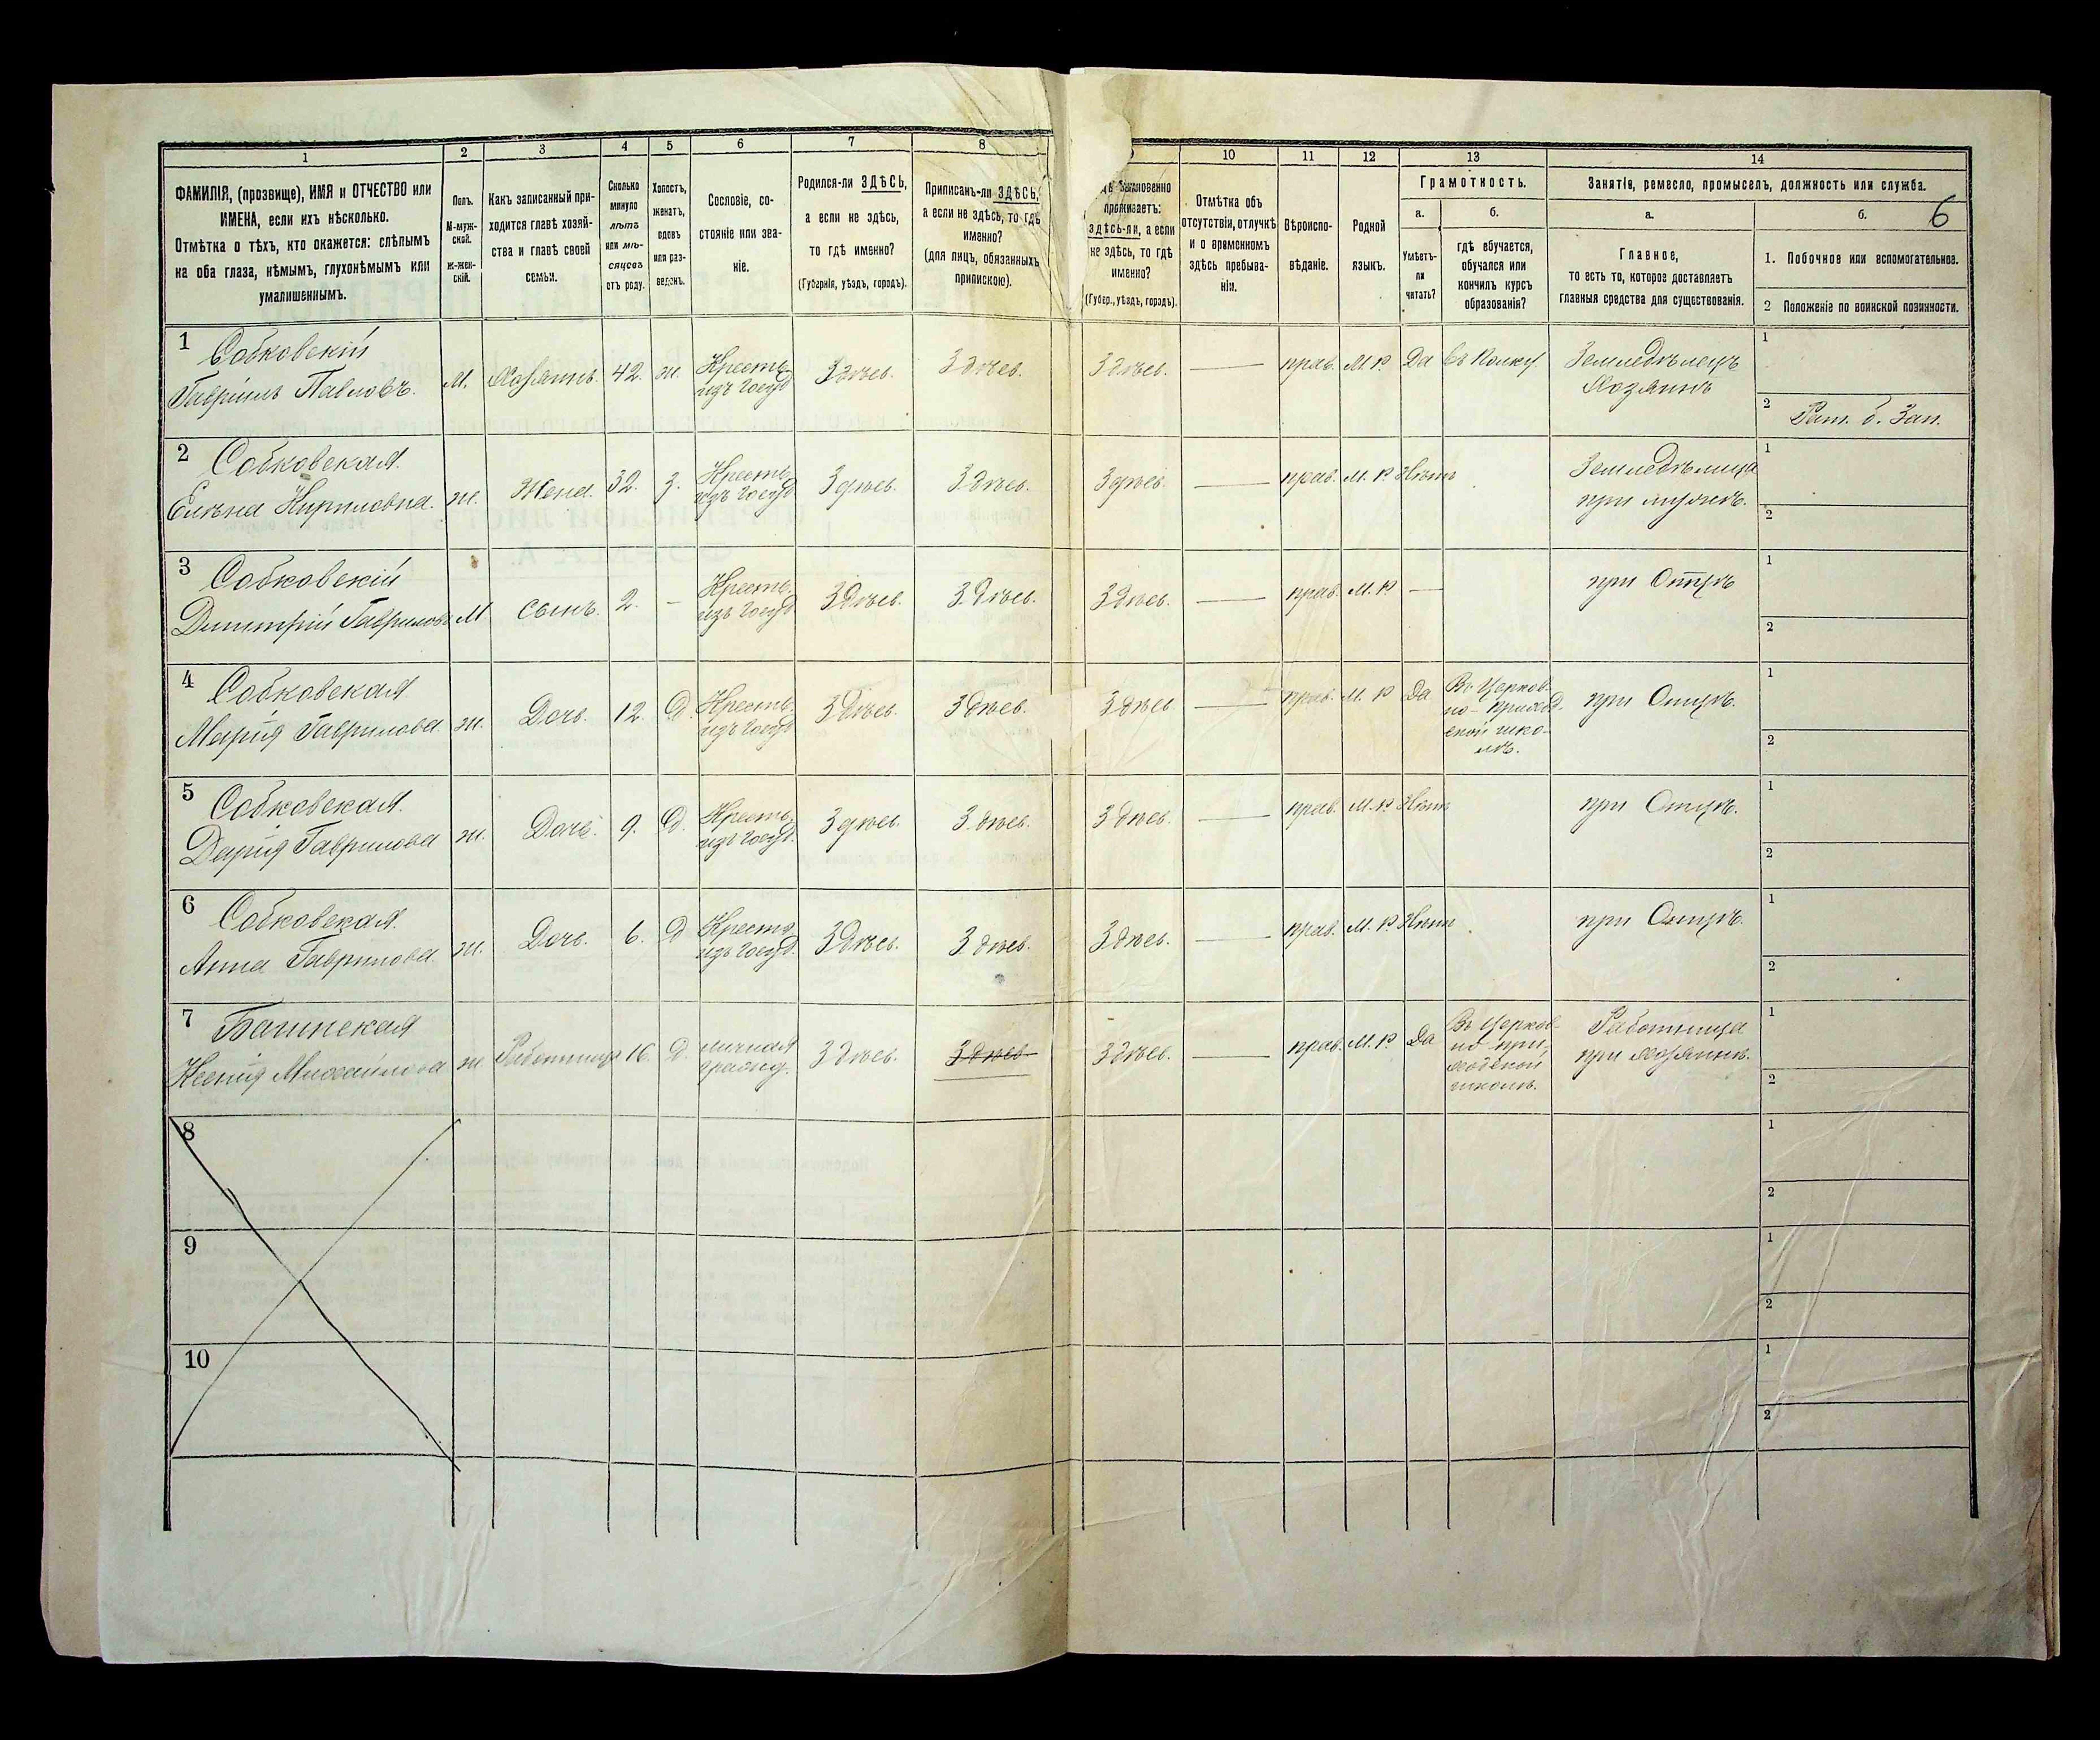 1 2 3 4 5 6 7 8 10 11 12 13 14
ФАМИЛІЯ, (прозвище), ИМЯ и ОТЧЕСТВО или
ИМЕНА, если ихъ нѣсколько.
Отмѣтка о тѣхъ, кто окажется: слѣпымъ
на оба глаза, нѣмымъ, глухонѣмымъ или
умалишеннымъ.
Полъ.
М-муж-
ской.
Ж-жен-
скій.
Какъ записанный при-
ходится главѣ хозяй-
ства и главѣ своей
семьи.
Сколько
минуло
лѣтъ
или мѣ-
сяцевъ
отъ роду.
Холостъ,
женатъ,
вдовъ
или раз-
веденъ.
Сословіе, со-
стояніе или зва-
ніе.
Родился-ли ЗДѢСЬ,
а если не здѣсь,
то гдѣ именно?
(Губернія, уѣздъ, городъ).
Приписанъ-ли ЗДѢСЬ,
а если не здѣсь, то гдѣ
именно?
(для лицъ, обязанныхъ
припискою).
проживаетъ:
ЗДѢСЬ-ЛИ, а если
не здѣсь, то гдѣ
именно?
(Губер., уѣздъ, городъ).
Отмѣтка объ
отсутствіи, отлучкѣ
и о временномъ
здѣсь пребыва-
ніи.
Вѣроиспо-
вѣданіе.
Родной
языкъ.
Грамотность.
а. б.
Умѣетъ-
ли
читать?
гдѣ обучается,
обучался или
кончилъ курсъ
образованія?
Занятіе, ремесло, промыселъ, должность или служба.
а. б. 6
Главное,
то есть то, которое доставляетъ
главныя средства для существованія.
1. Побочное или вспомогательное.
2 Положеніе по воинской повинности.
1 Собковскій
Гавріилъ Павловъ. м. Хозяинъ. 42. ж. Крестьян.
изъ Здѣсь. Здѣсь. Здѣсь. — прав. М. Р. Да
Земледѣлецъ
Хозяинъ
1
2 Рат. Зап.
2 Собковская.
Елена Кириловна. ж. Жена. 32. З. Крестьян.
изъ Здѣсь. Здѣсь. Здѣсь. — прав. М. Р. Нѣтъ
Земледѣлица
при мужѣ.
1
2
3 Собковскій
Димитрій Гавриловъ М сынъ. 2. - Крестьян.
изъ Здѣсь. Здѣсь. Здѣсь. — прав. М. Р. — при Отцѣ
1
2
4 Собковская
Марія Гаврилова ж. Дочь. 12. Д. Крестьян.
изъ Здѣсь. Здѣсь. Здѣсь — прав. М. Р Да
Въ Церков-
но-приход-
ской шко-
лѣ.
при Отцѣ.
1
2
5 Собковская.
Дарія Гаврилова ж. Дочь. 9. Д. Крестьян.
изъ Здѣсь. Здѣсь. Здѣсь. — прав. М. Р. Нѣтъ при Отцѣ.
1
2
6 Собковская.
Анна Гаврилова ж. Дочь. 6. Д Крестьян.
изъ Здѣсь. Здѣсь. Здѣсь. — прав. М. Р. Нѣтъ при Отцѣ.
1
2
7
Ксенія Михайлова ж Работница 16. Д.
Здѣсь. Здѣсь Здѣсь. — прав. М. Р. Да
Въ Церков-
но-при-
ходской
школѣ.
Работница
при хозяинѣ.
1
2
8
1
2
9
1
2
10
1
2